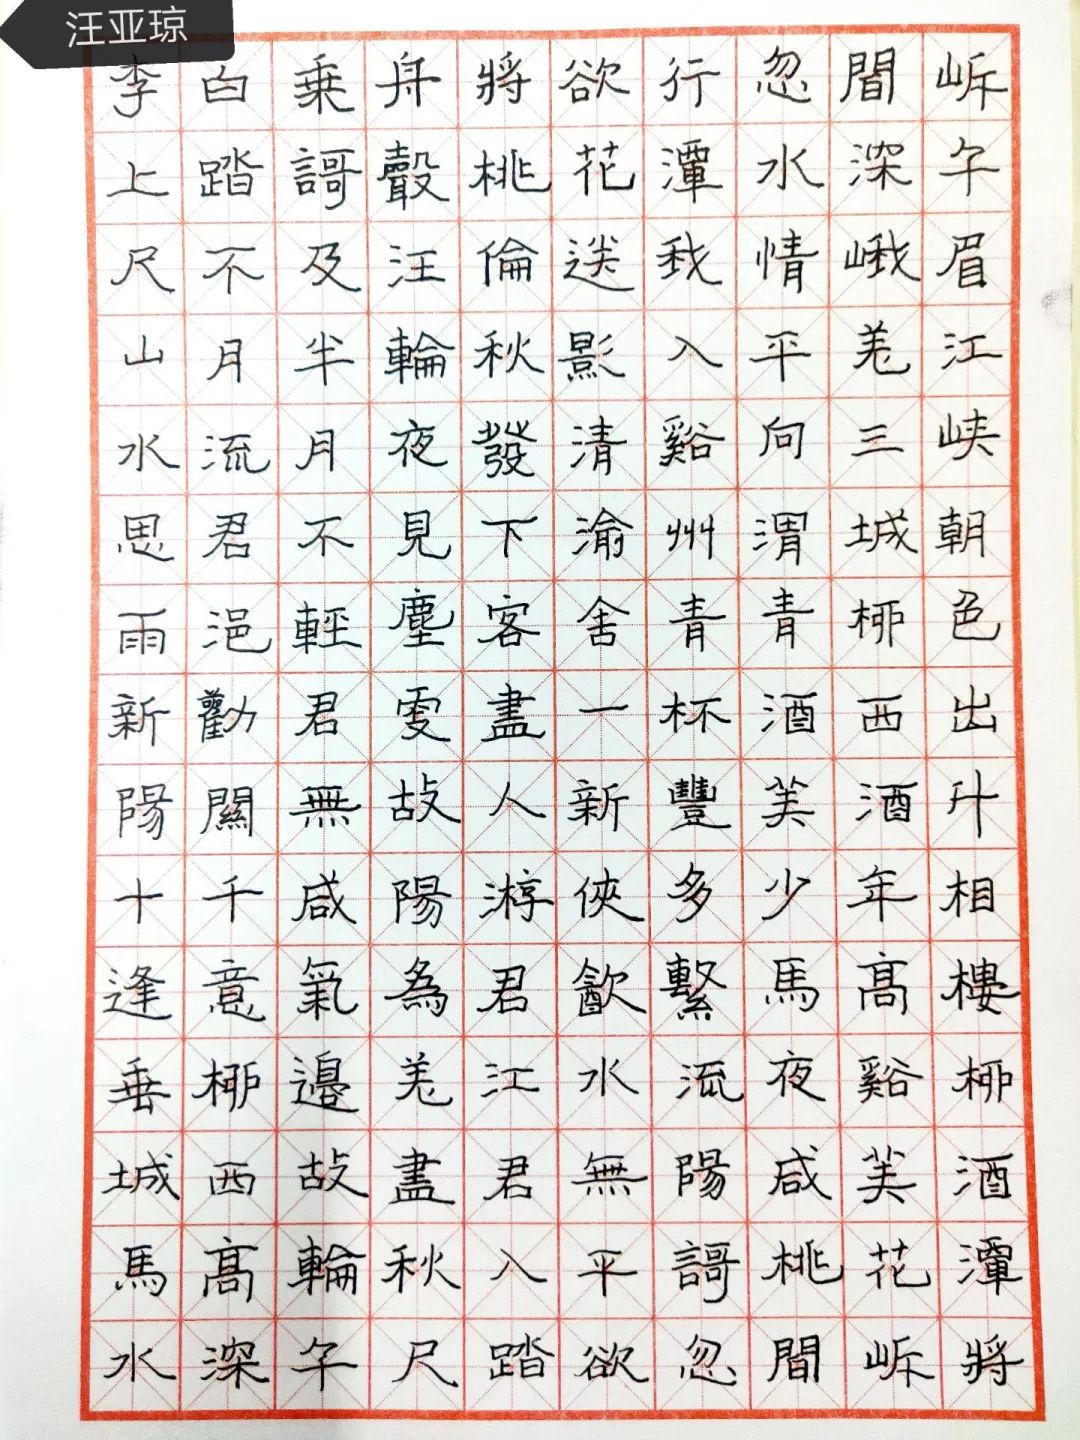 汪亚琼
李白乗舟將欲行忽聞岍
上踏謌聲桃花潭水深千
尺不及汪倫送我情峨眉
山月半輪秋影入平羌江
水流月夜發清谿向三峡
思君不見下渝州渭城朝
雨浥輕塵客舍青青柳色
新勸君更盡一杯酒西出
陽關無故人新豐美酒升
十千咸陽游俠多少年相
逢意氣為君飲繫馬高樓
垂柳邊羌江水流夜谿柳
城西故盡君無陽咸美酒
馬高輪秋入平謌桃花潭
水深千尺踏欲忽聞岍將